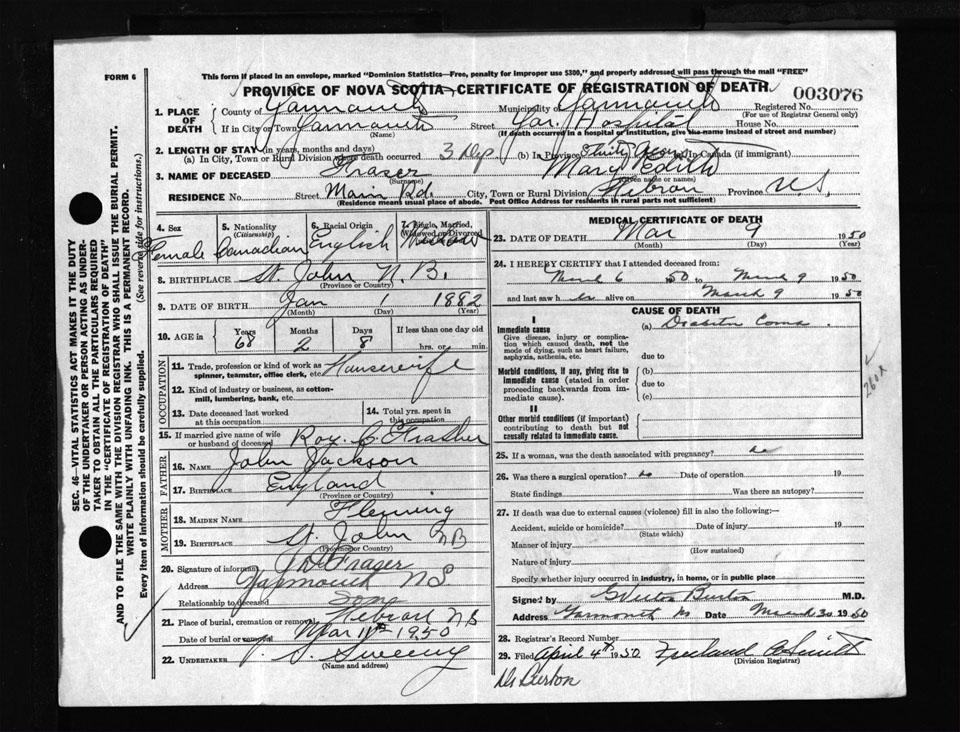 FORM 6
This form if placed in an envelope, marked "Dominion Statistics—Free, penalty for improper use $300," and properly addressed will pass through the mail "FREE"
PROVINCE OF NOVA SCOTIA—CERTIFICATE OF REGISTRATION OF DEATH
003076
1. PLACE OF DEATH
County of Yarmouth Municipality of Yarmouth Registered No.
(For use of Registrar General only)
If in City or Town Yarmouth Street Yar. Hospital House No.
(Name) (If death occurred in a hospital or institution, give the name instead of street and number)
2. LENGTH OF STAY (in years, months and days)
(a) In City, Town or Rural Division where death occurred 3 Dys (b) In Province Thirty Years In Canada (if immigrant)
3. NAME OF DECEASED Fraser Mary Edith
(Surname) (Given name or names)
RESIDENCE No. Street Main Rd. City, Town or Rural Division Hebron Province N.S.
(Residence means usual place of abode. Post Office Address for residents in rural parts not sufficient)
4. Sex 5. Nationality (Citizenship) 6. Racial Origin 7. Single, Married, Widowed or Divorced
Female Canadian English Widow
8. BIRTHPLACE St. John N.B.
(Province or Country)
9. DATE OF BIRTH Jan 1 1882
(Month) (Day) (Year)
10. AGE in Years Months Days If less than one day
68 2 8 hrs. or min.
OCCUPATION
11. Trade, profession or kind of work as spinner, teamster, office clerk, etc. Housewife
12. Kind of industry or business, as cotton-mill, lumbering, bank, etc.
13. Date deceased last worked at this occupation
14. Total yrs. spent in this occupation
15. If married give name of wife or husband of deceased Roy C Frasher
FATHER
16. NAME John Jackson
17. BIRTHPLACE England
(Province or Country)
MOTHER
18. MAIDEN NAME Fleming
19. BIRTHPLACE St. John NB
(Province or Country)
20. Signature of informant Fraser
Address Yarmouth N.S.
Relationship to deceased Son
21. Place of burial, cremation or removal Hebron
Date of burial or removal Mar 11th 1950
22. UNDERTAKER Sweeny
(Name and address)
MEDICAL CERTIFICATE OF DEATH
23. DATE OF DEATH Mar 9 1950
(Month) (Day) (Year)
24. I HEREBY CERTIFY that I attended deceased from:
March 6 1950 to March 9 1950
and last saw her alive on March 9 1950
CAUSE OF DEATH
I
Immediate cause (a) Diabetic Coma.
Give disease, injury or complication which caused death, not the mode of dying, such as heart failure, asphyxia, asthenia, etc.
due to
Morbid conditions, if any, giving rise to immediate cause (stated in order proceeding backwards from immediate cause).
(b)
due to
(c)
260X
II
Other morbid conditions (if important) contributing to death but not causally related to immediate cause.
25. If a woman, was the death associated with pregnancy? no
26. Was there a surgical operation? no Date of operation 19
State findings Was there an autopsy?
27. If death was due to external causes (violence) fill in also the following:—
Accident, suicide or homicide? Date of injury 19
(State which)
Manner of injury
(How sustained)
Nature of injury
Specify whether injury occurred in industry, in home, or in public place
Signed by Burton M.D.
Address Yarmouth Date March 30 1950
28. Registrar's Record Number
29. Filed April 4th 1950
(Division Registrar)
Dr Burton
SEC. 46—VITAL STATISTICS ACT MAKES IT THE DUTY
OF THE UNDERTAKER OR PERSON ACTING AS UNDER-
TAKER TO OBTAIN ALL THE PARTICULARS REQUIRED
IN THE "CERTIFICATE OF REGISTRATION OF DEATH"
AND TO FILE THE SAME WITH THE DIVISION REGISTRAR WHO SHALL ISSUE THE BURIAL PERMIT.
WRITE PLAINLY WITH UNFADING INK. THIS IS A PERMANENT RECORD.
Every item of information should be carefully supplied. (See reverse side for instructions.)